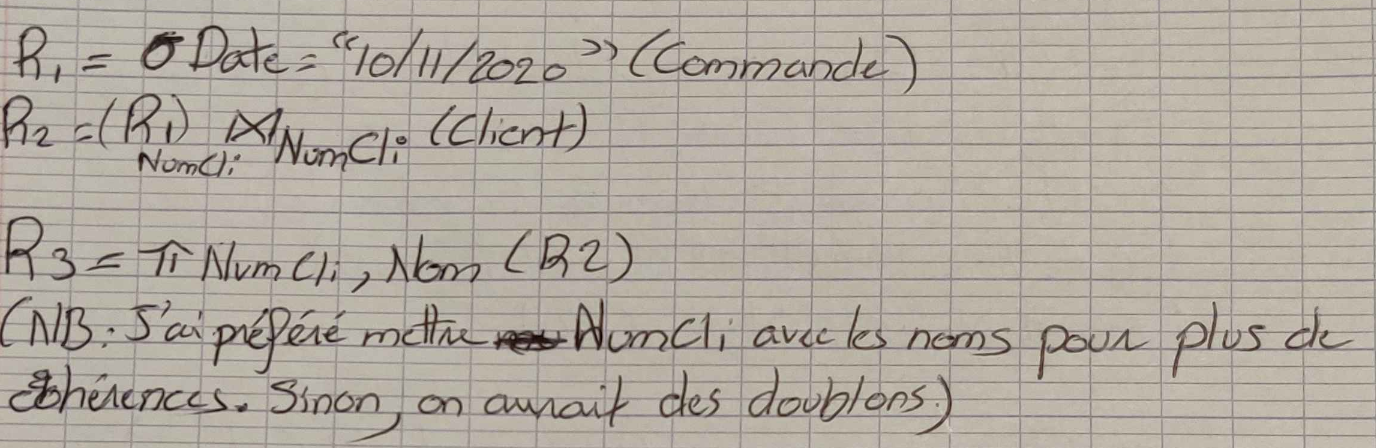 R₁ = σ Date = "10/11/2020" (Commande)
R₂ = (R₁) ⋈ NumCli (Client)
NumCli
R3 = π NumCli, Nom (R2)
(NB: J'ai préféré mettre NumCli avec les noms pour plus de
cohérences. Sinon, on aurait des doublons.)